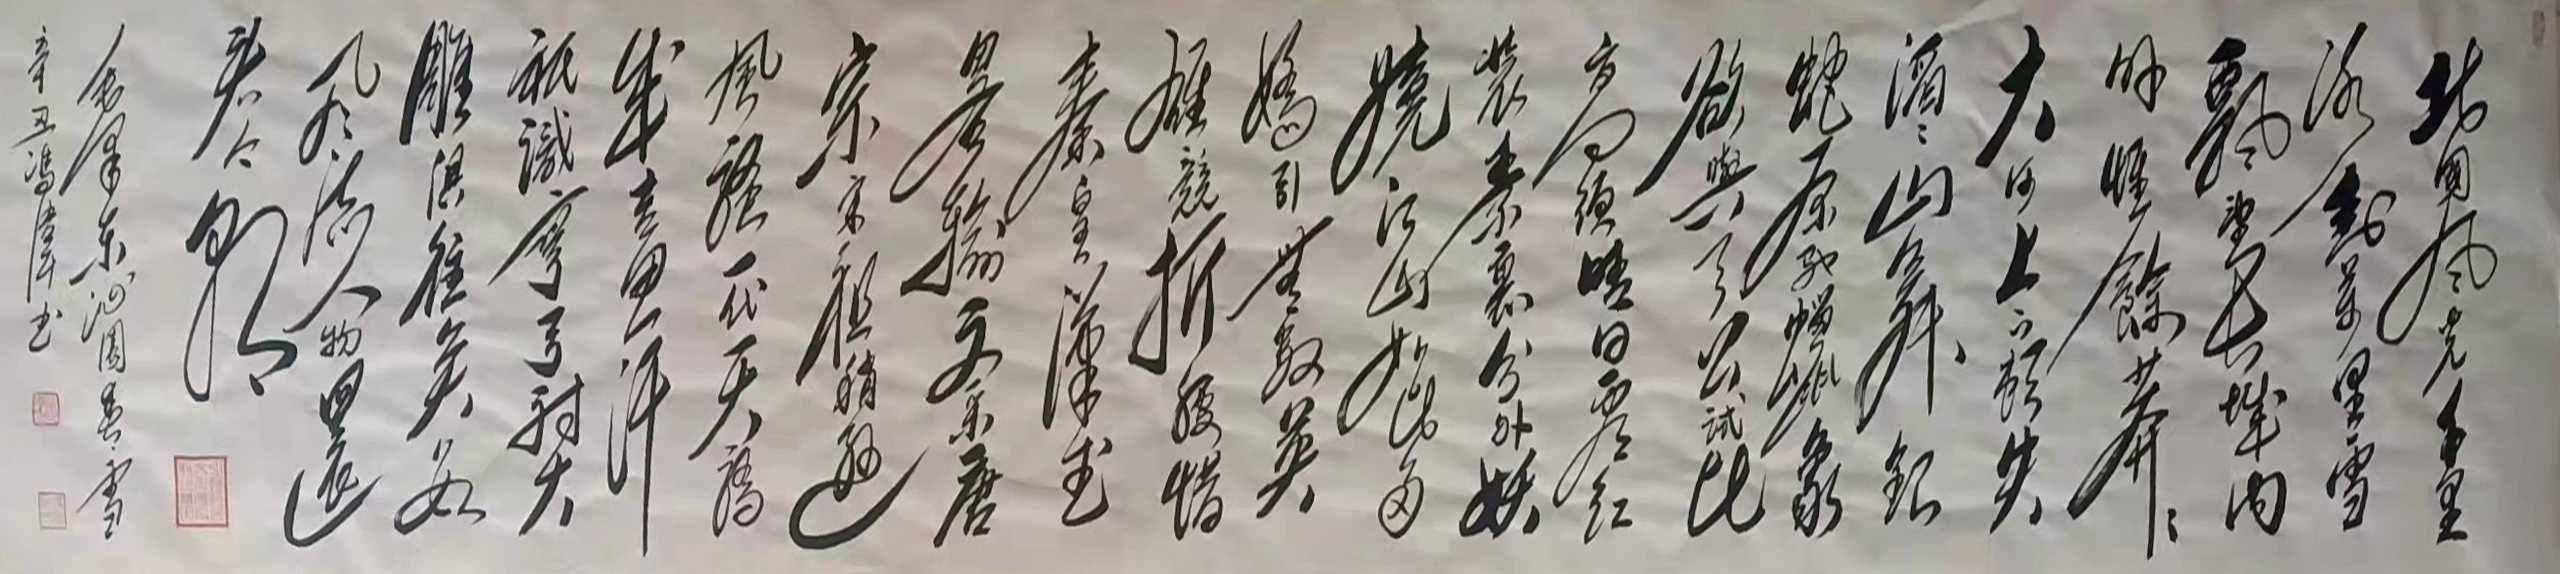 北國風光千里
冰封萬里雪
飄望長城內
外惟餘莽〻
大河上下頓失
滔〻山舞銀
蛇原馳蠟象
欲與天公試比
高須晴日看紅
裝素裹分外妖
嬈江山如此多
嬌引無數英
雄競折腰惜
秦皇漢武
略輸文采唐
宗宋祖稍遜
風騷一代天驕
成吉思汗
祇識彎弓射大
雕俱往矣數
風流人物還
看今朝
毛澤東沁園春雪
辛丑馮偉書